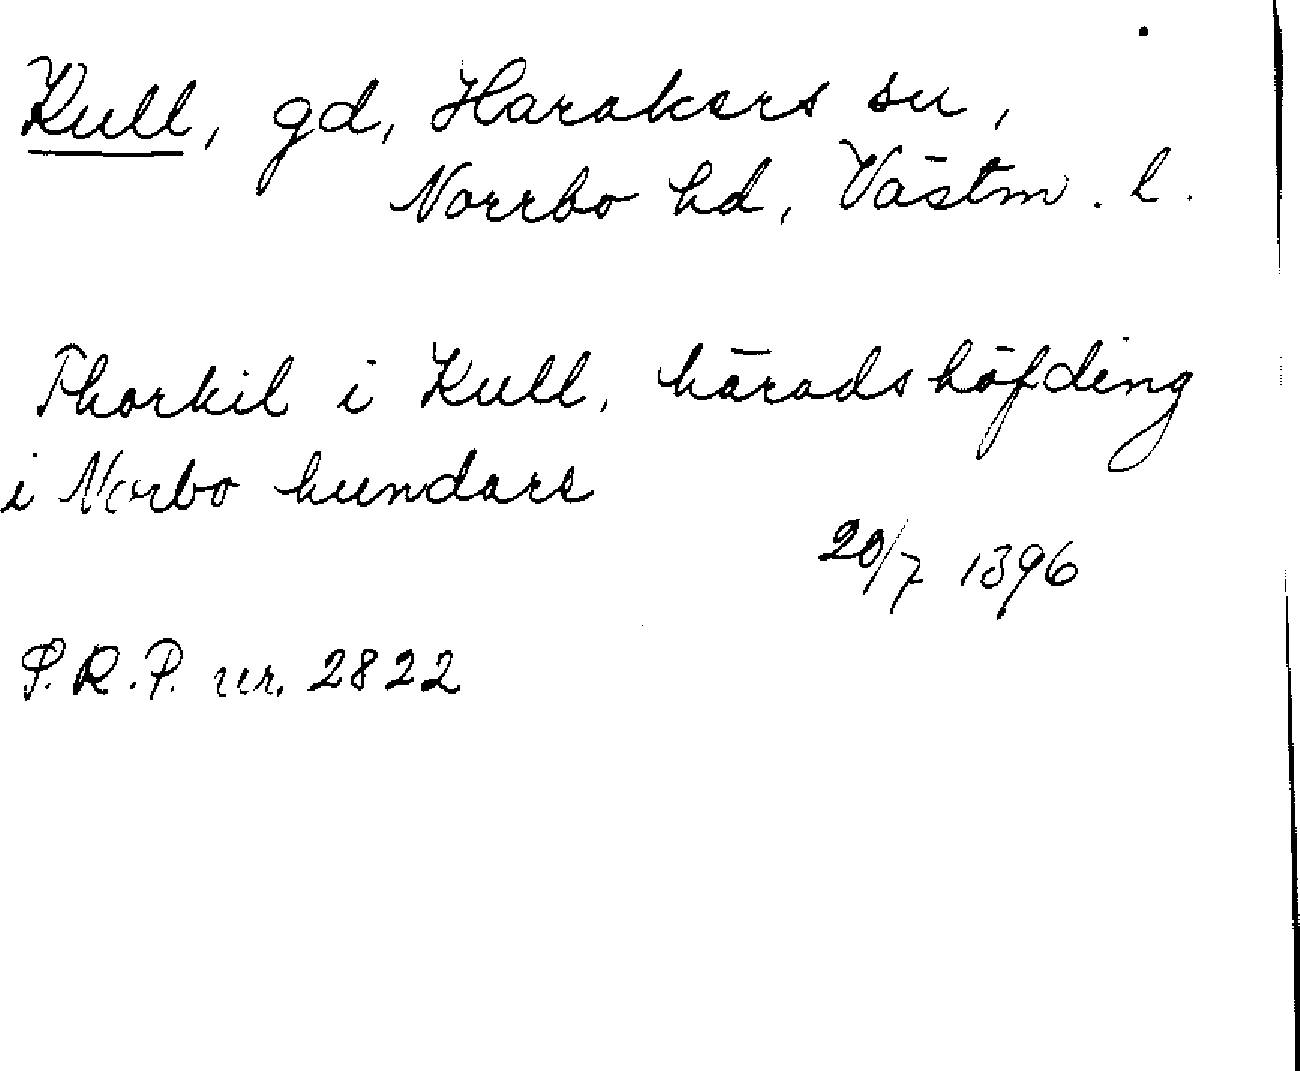 Kull, gd, Harakers sn,
Norrbo hd, Västm. l.
Thorkil i Kull, häradshöfding
i Norbo hundare
20/7 1396
S.R.P. nr. 2822